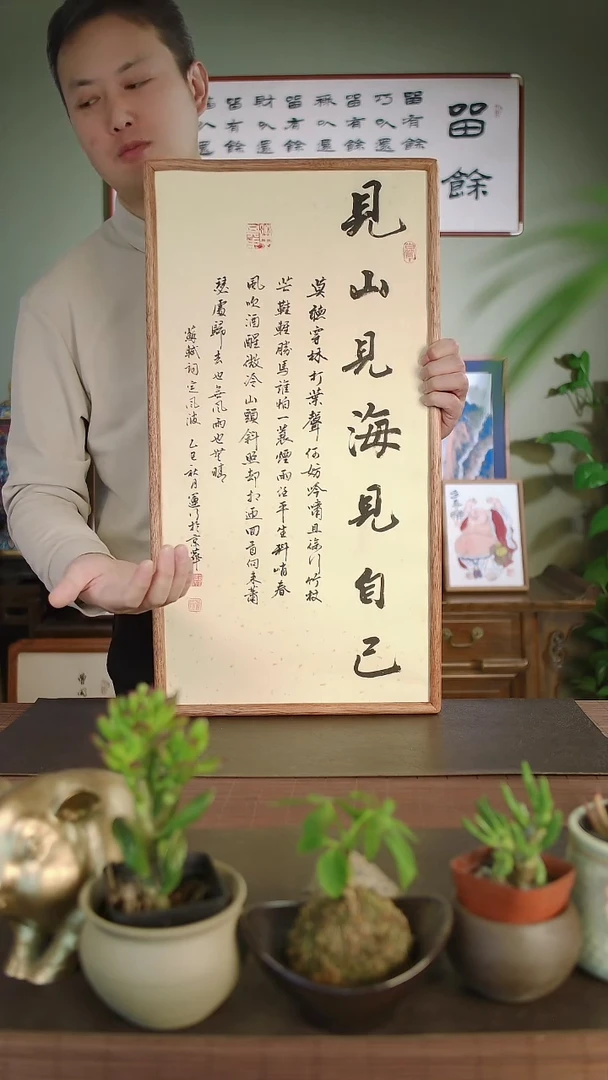 見山見海見自己
莫聽穿林打葉聲何妨吟嘯且徐行竹杖
芒鞋輕勝馬誰怕一蓑煙雨任平生料峭春
風吹酒醒微冷山頭斜照却相迎回首向來蕭
瑟處歸去也無風雨也無晴
蘇軾詞定風波 乙巳秋月於京華
留餘
留有餘
巧以還
留有餘
祿以還
留有餘
財以還
留有餘